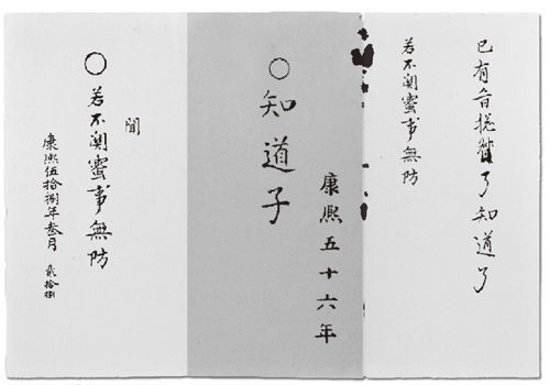 已有旨搃督了知道了
若不測蜜事無防
康熙五十六年
○知道子
聞
○若不測蜜事無防
康熙伍拾捌年叁月 貳拾捌